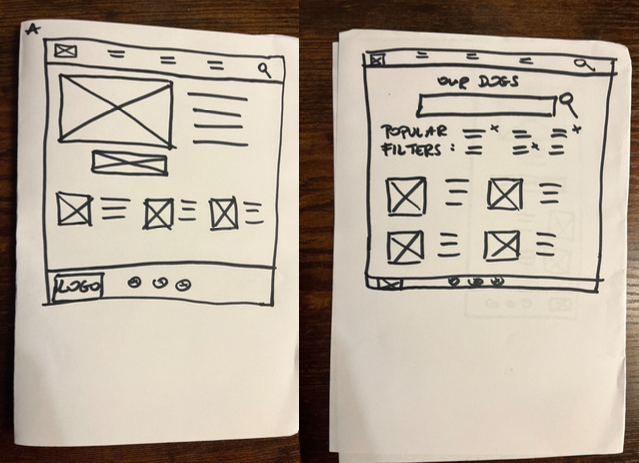 A
LOGO
OUR DOGS
POPULAR
FILTERS: